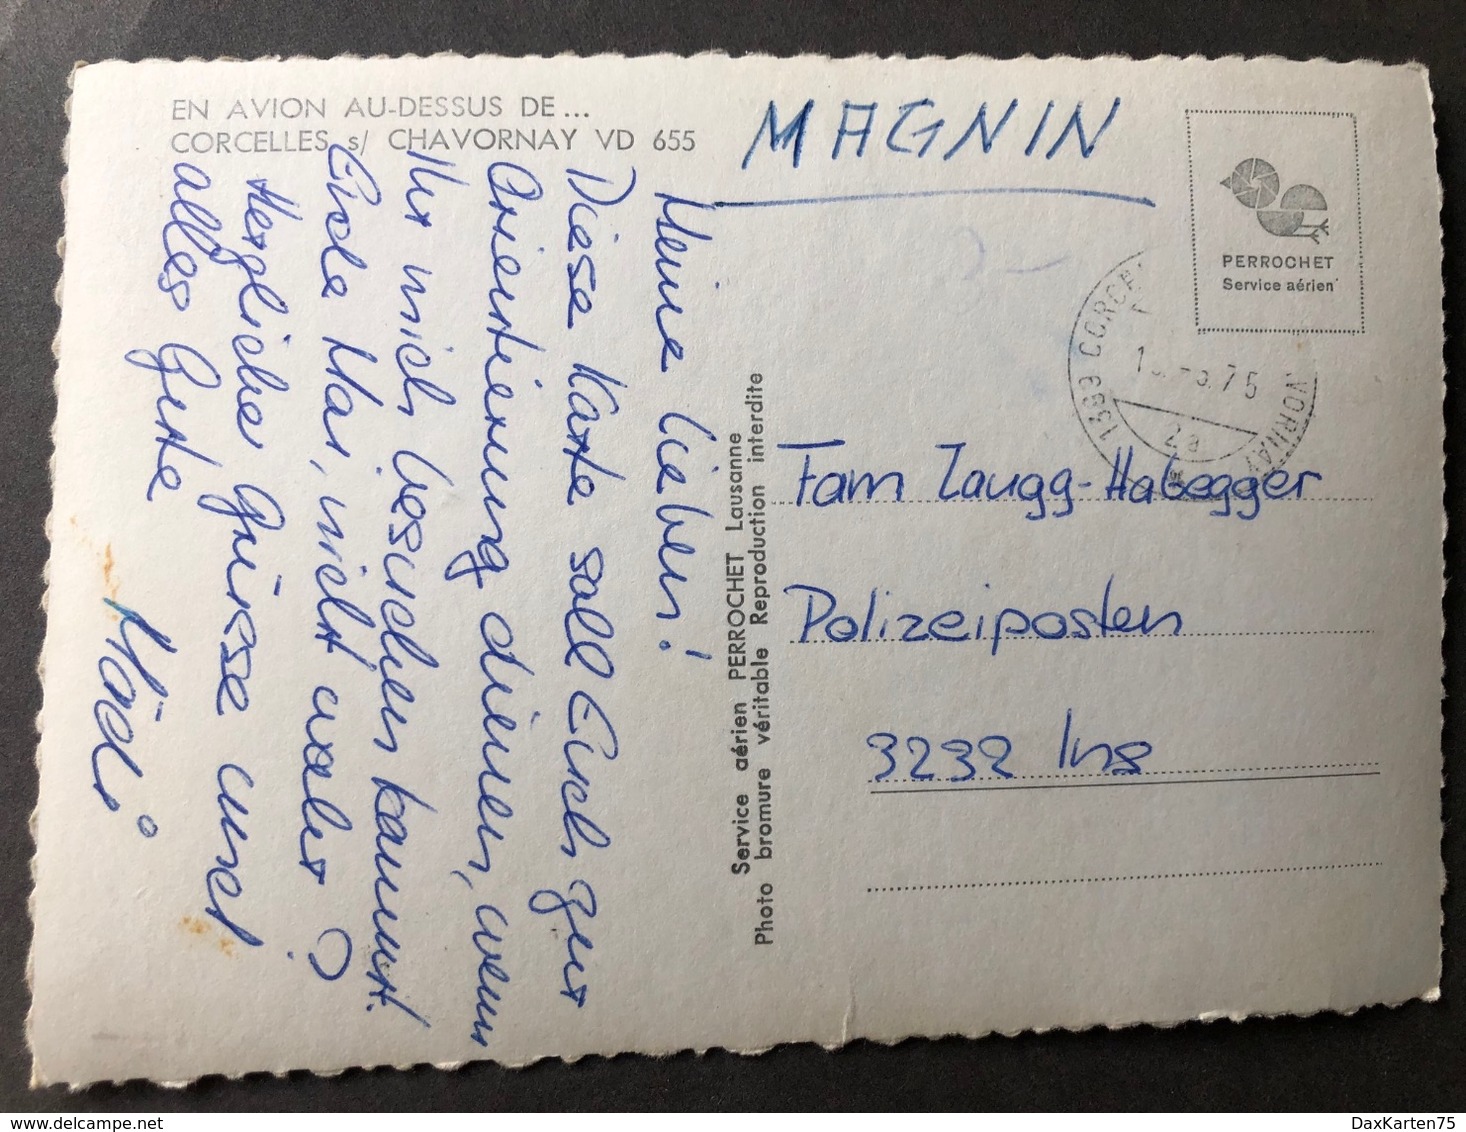 EN AVION AU-DESSUS DE...
CORCELLES s/ CHAVORNAY VD 655
MAGNIN
PERROCHET
Service aérien
1399 CORCE
VORNAY
.75
2a
Meine lieben!
Diese Karte soll Euch zur
Orientierung dienen, wenn
Ihr mich besuchen kommt.
Ende Mai, nicht wahr?
Herzliche Grüsse und
alles Gute
Mädi
Service aérien PERROCHET Lausanne
Photo bromure véritable Reproduction interdite
Fam Zaugg-Habegger
Polizeiposten
3232 Ins
DaxKarten75